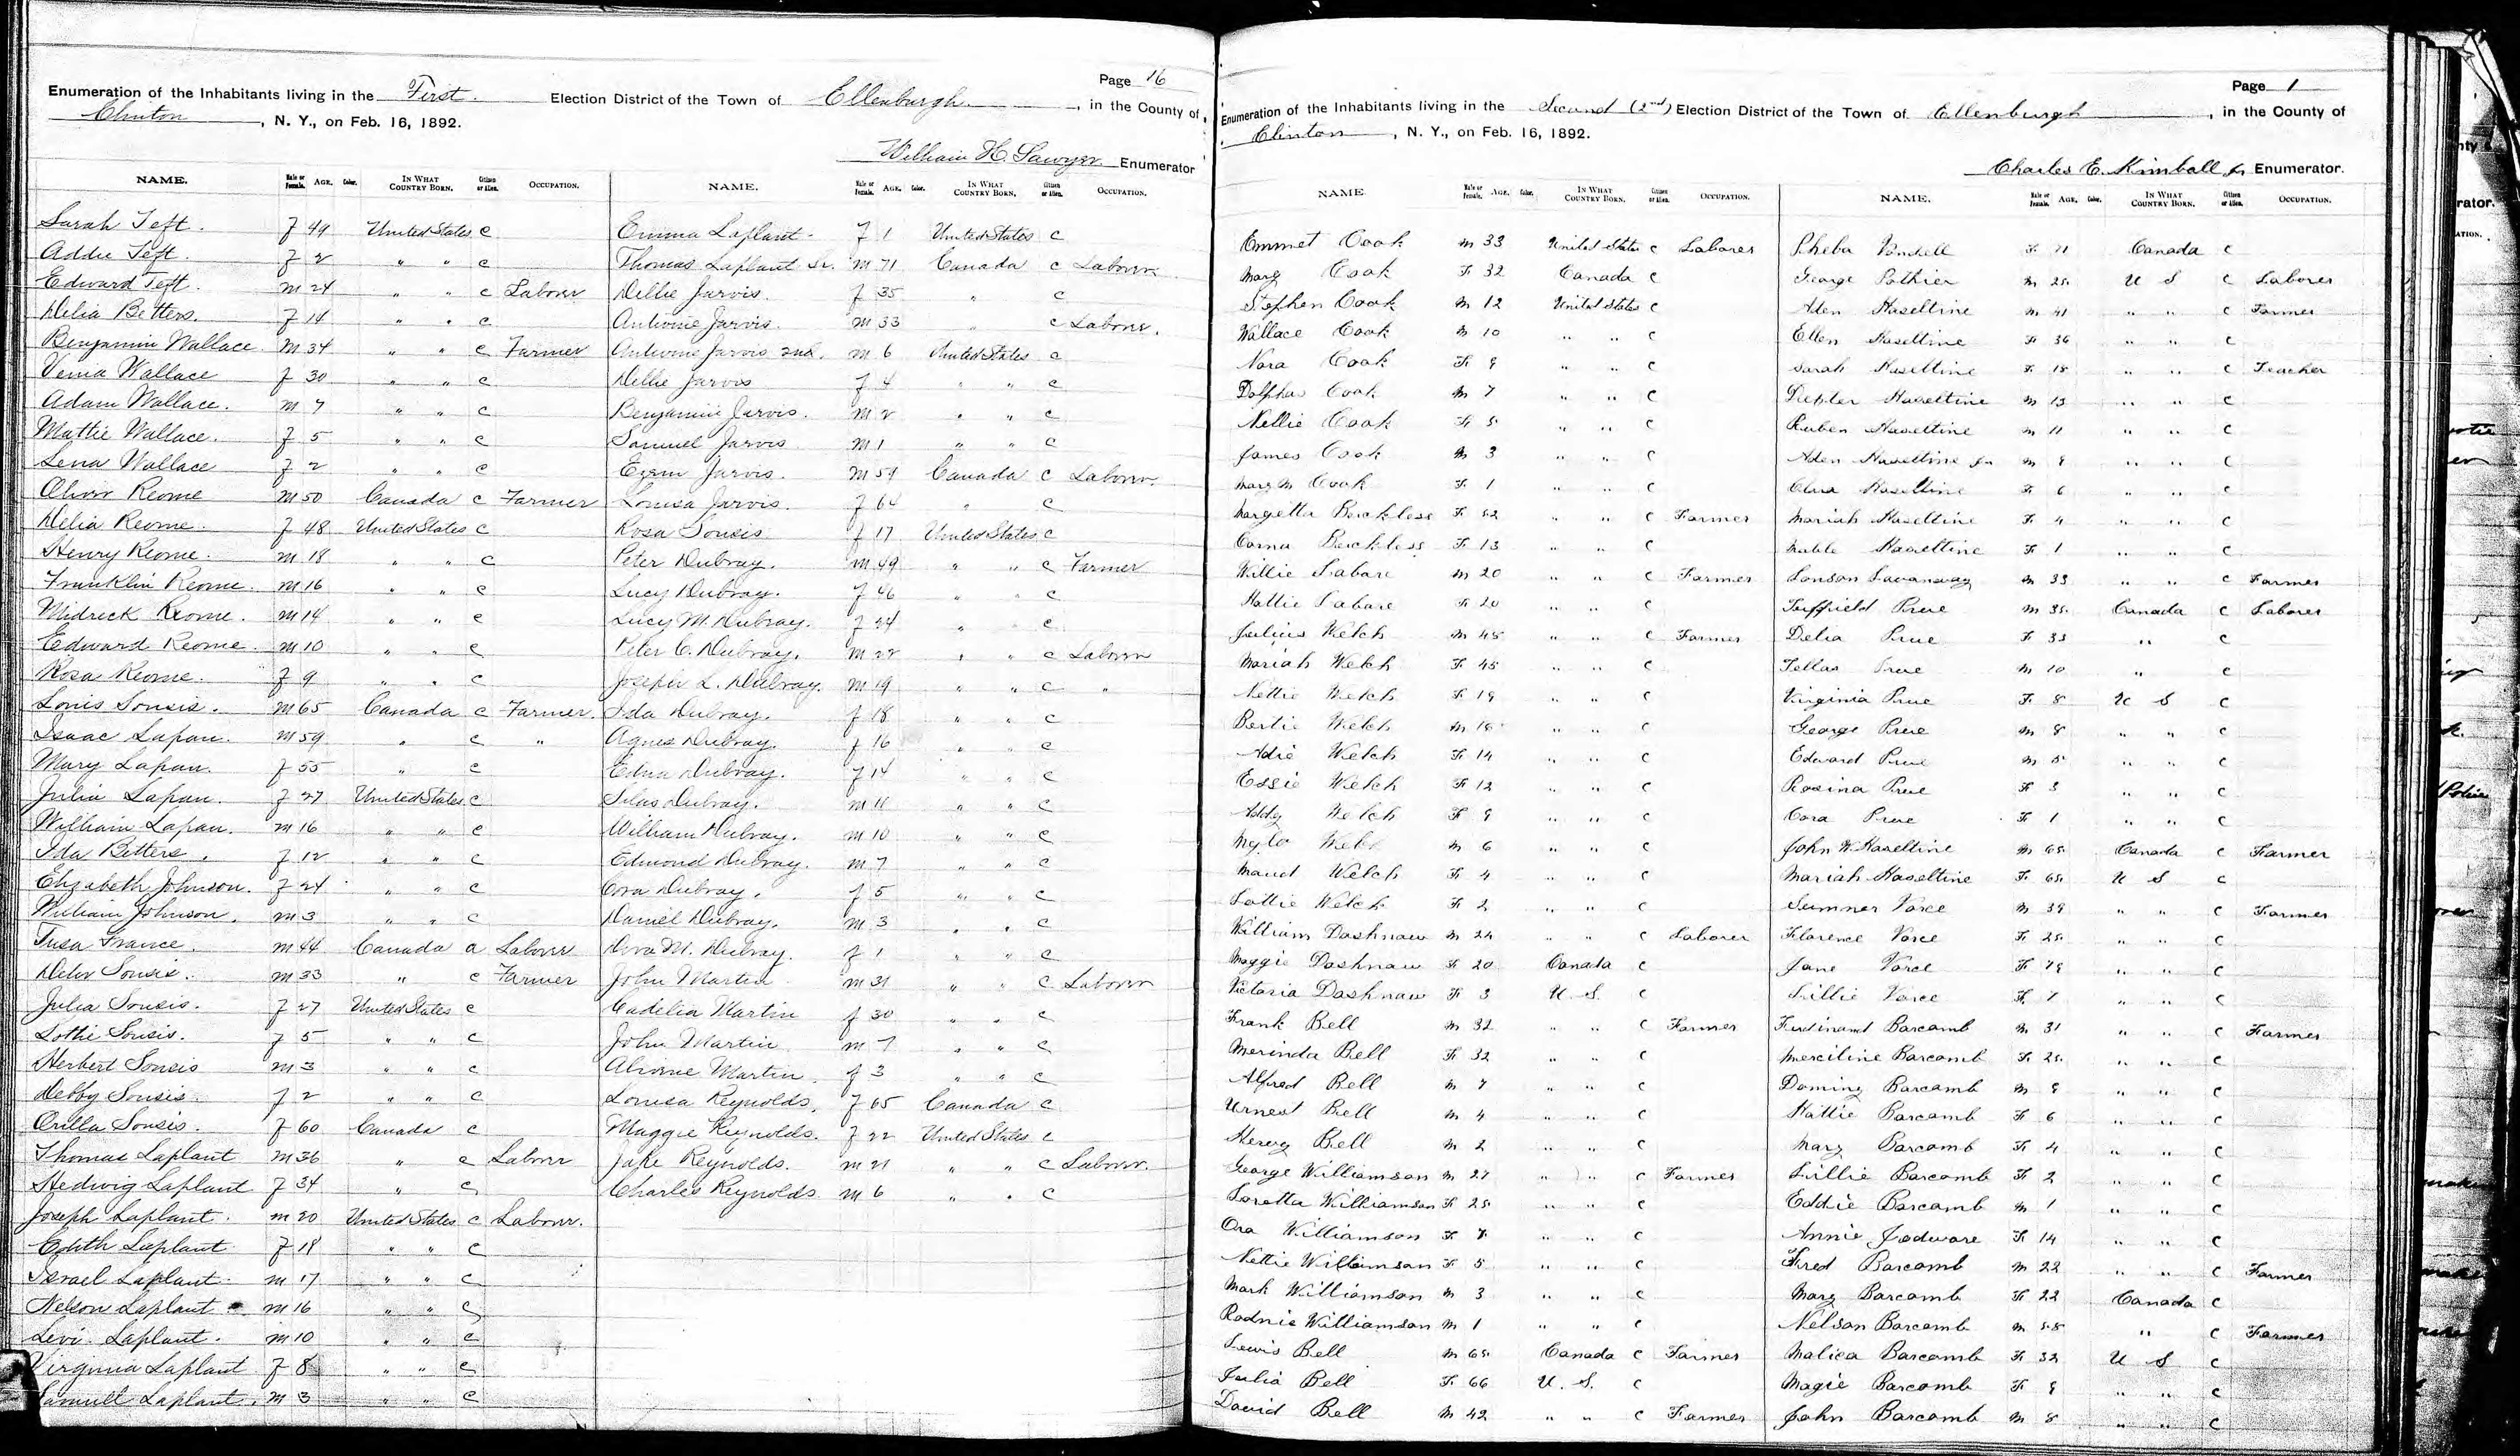 Page 16
Enumeration of the Inhabitants living in the First Election District of the Town of Ellenburgh, in the County of
Clinton, N. Y., on Feb. 16, 1892.
William H. Sawyer Enumerator
NAME. Male or Female. AGE. Color. IN WHAT COUNTRY BORN. Citizen or Alien. OCCUPATION.
Sarah Teft. F 49 United States C
Addie Teft. F 2 " " C
Edward Teft. M 24 " " C Laborer
Delia Betters. F 14 " " C
Benjamin Wallace M 34 " " C Farmer
Wallace F 30 " " C
Adam Wallace. M 7 " " C
Mattie Wallace. F 5 " " C
Lena Wallace F 2 " " C
Oliver Reome M 50 Canada C Farmer
Delia Reome. F 48 United States C
Henry Reome. M 18 " " C
Franklin Reome. M 16 " " C
Midrick Reome. M 14 " " C
Edward Reome. M 10 " " C
Rosa Reome. F 9 " " C
Louis Sousis. M 65 Canada C Farmer.
Isaac Lapan. M 59 " C "
Mary Lapan. F 55 " C
Julia Lapan. F 27 United States C
William Lapan. M 16 " " C
Ida Betters. F 12 " " C
Elizabeth Johnson. F 24 " " C
William Johnson. M 3 " " C
France. M 44 Canada a Laborer
Sousis. M 33 " C Farmer
Julia Sousis. F 27 United States C
Lottie Sousis. F 5 " " C
Herbert Sousis M 3 " " C
Debby Sousis. F 2 " " C
Orilla Sousis. F 60 Canada C
Thomas Laplant M 36 " C Laborer
Hedwig Laplant F 34 " C
Joseph Laplant. M 20 United States C Laborer.
Edith Laplant F 18 " " C
Israel Laplant. M 17 " " C
Nelson Laplant M 16 " " C
Levi Laplant. M 10 " " C
Virginia Laplant F 8 " " C
Samuell Laplant. M 3 " " C
NAME. Male or Female. AGE. Color. IN WHAT COUNTRY BORN. Citizen or Alien. OCCUPATION.
Emma Laplant. F 1 United States C
Thomas Laplant Sr. M 71 Canada C Laborer
Dellie Jarvis. F 35 " C
Antwine Jarvis. M 33 " C Laborer.
Antwine Jarvis 2nd. M 6 United States C
Dellie Jarvis F 4 " " C
Benjamin Jarvis. M 2 " " C
Samuel Jarvis M 1 " " C
Jarvis. M 59 Canada C Laborer.
Louisa Jarvis. F 64 " C
Rosa Sousis F 17 United States C
Peter Dubray. M 49 " " C Farmer
Lucy Dubray. F 46 " " C
Lucy M. Dubray. F 24 " " C
Peter C. Dubray. M 22 " " C Laborer
Joseph L. Dubray. M 19 " " C "
Ida Dubray. F 18 " " C
Agnes Dubray. F 16 " " C
Edna Dubray. F 14 " " C
Silas Dubray. M 11 " " C
William Dubray. M 10 " " C
Edmond Dubray. M 7 " " C
Cora Dubray. F 5 " " C
Daniel Dubray. M 3 " " C
M. Dubray. F 1 " " C
John Martin M 31 " " C Laborer
Cadelia Martin F 30 " " C
John Martin M 7 " " C
Martin. F 3 " " C
Louisa Reynolds. F 65 Canada C
Maggie Reynolds. F 22 United States C
Jake Reynolds. M 21 " " C Laborer.
Charles Reynolds M 6 " " C
Page 1
Enumeration of the Inhabitants living in the Second (2nd) Election District of the Town of Ellenburgh, in the County of
Clinton, N. Y., on Feb. 16, 1892.
Charles E. Kimball Jr Enumerator.
NAME Male or Female. AGE. Color. IN WHAT COUNTRY BORN. Citizen or Alien. OCCUPATION.
Emmet Cook M 33 United States C Laborer
Mary Cook F 32 Canada C
Stephen Cook M 12 United States C
Wallace Cook M 10 " " C
Nora Cook F 9 " " C
Dolphus Cook M 7 " " C
Nellie Cook F 5 " " C
James Cook M 3 " " C
Mary M Cook F 1 " " C
Margetta Beckless F 52 " " C Farmer
Corna Beckless F 13 " " C
Willie Labare M 20 " " C Farmer
Hattie Labare F 20 " " C
Julius Welch M 45 " " C Farmer
Mariah Welch F 45 " " C
Nettie Welch F 19 " " C
Bertie Welch M " " C
Adie Welch F 14 " " C
Essie Welch F 12 " " C
Addy Welch F 9 " " C
Mylo Welch M 6 " " C
Maud Welch F 4 " " C
Lottie Welch F 2 " " C
William Dashnaw M 24 " " C Laborer
Maggie Dashnaw F 20 Canada C
Victoria Dashnaw F 3 U. S. C
Frank Bell M 32 " " C Farmer
Merinda Bell F 32 " " C
Alfred Bell M 7 " " C
Urnest Bell M 4 " " C
Henry Bell M 2 " " C
George Williamson M 27 " " C Farmer
Loretta Williamson F 25 " " C
Ora Williamson F 7 " " C
Nettie Williamson F 5 " " C
Mark Williamson M 3 " " C
Rodnie Williamson M 1 " " C
Lewis Bell M 65 Canada C Farmer
Julia Bell F 66 U. S. C
David Bell M 42 " " C Farmer
NAME. Male or Female. AGE. Color. IN WHAT COUNTRY BORN. Citizen or Alien. OCCUPATION.
Pheba F 71 Canada C
George Pothier M 25 U S C Laborer
Aden Haseltine M 41 " " C Farmer
Ellen Haseltine F 36 " " C
Sarah Haseltine F 18 " " C Teacher
Haseltine M 13 " " C
Ruben Haseltine M 11 " " C
Aden Haseltine Jr M 8 " " C
Clara Haseltine F 6 " " C
Mariah Haseltine F 4 " " C
Mable Haseltine F 1 " " C
Lonson Savanaway M 33 " " C Farmer
Tuffield Prue M 35 Canada C Laborer
Delia Prue F 33 " C
Tellas Prue M 10 " C
Virginia Prue F 8 U S C
George Prue M 8 " " C
Edward Prue M 5 " " C
Rosina Prue F 3 " " C
Cora Prue F 1 " " C
John W. Haseltine M 65 Canada C Farmer
Mariah Haseltine F 65 U S C
Sumner Vorce M 39 " " C Farmer
Florence Vorce F 25 " " C
Jane Vorce F 79 " " C
Lillie Vorce F 7 " " C
Ferdinand Barcomb M 31 " " C Farmer
Merciline Barcomb F 25 " " C
Dominy Barcomb M 8 " " C
Hattie Barcomb F 6 " " C
Mary Barcomb F 4 " " C
Lillie Barcomb F 2 " " C
Eddie Barcomb M 1 " " C
Annie Jodware F 14 " " C
Fred Barcomb M 22 " " C Farmer
Mary Barcomb F 22 Canada C
Nelson Barcomb M 55 " C Farmer
Malica Barcomb F 32 U S C
Magie Barcomb F 9 " " C
John Barcomb M 8 " " C